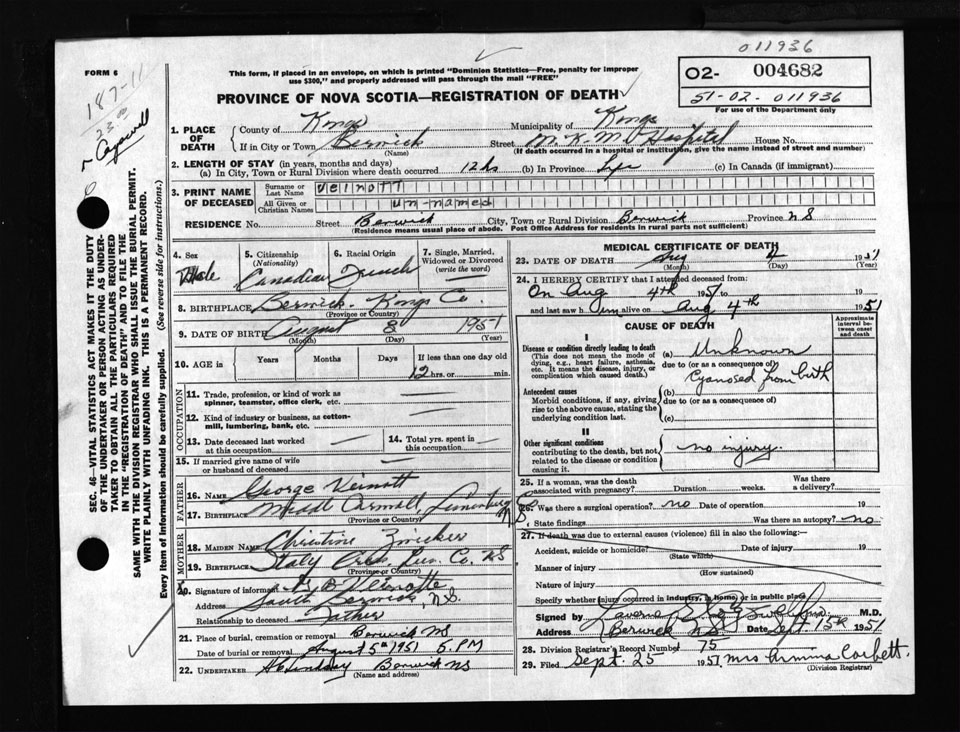 011936
FORM 6
This form, if placed in an envelope, on which is printed "Dominion Statistics—Free, penalty for improper
use $300," and properly addressed will pass through the mail "FREE"
O2- 004682
51-02-011936
For use of the Department only
187-11
PROVINCE OF NOVA SCOTIA—REGISTRATION OF DEATH
1. PLACE OF DEATH
County of Kings Municipality of Kings
If in City or Town Berwick Street W. K. M. Hospital House No.
(Name) (If death occurred in a hospital or institution, give the name instead of street and number)
2. LENGTH OF STAY (in years, months and days)
(a) In City, Town or Rural Division where death occurred 12 hs (b) In Province Life (c) In Canada (if immigrant)
3. PRINT NAME OF DECEASED
Surname or Last Name Veinott
All Given or Christian Names un-named
RESIDENCE No. Street Berwick City, Town or Rural Division Berwick Province NS
(Residence means usual place of abode. Post Office Address for residents in rural parts not sufficient)
SEC. 46—VITAL STATISTICS ACT MAKES IT THE DUTY
OF THE UNDERTAKER OR PERSON ACTING AS UNDER-
TAKER TO OBTAIN ALL THE PARTICULARS REQUIRED
IN THE "REGISTRATION OF DEATH" AND TO FILE THE
SAME WITH THE DIVISION REGISTRAR WHO SHALL ISSUE THE BURIAL PERMIT.
WRITE PLAINLY WITH UNFADING INK. THIS IS A PERMANENT RECORD.
Every item of Information should be carefully supplied. (See reverse side for instructions.)
4. Sex Male
5. Citizenship (Nationality) Canadian
6. Racial Origin French
7. Single, Married, Widowed or Divorced (write the word)
8. BIRTHPLACE Berwick Kings Co.
(Province or Country)
9. DATE OF BIRTH August 8 1951
(Month) (Day) (Year)
10. AGE in Years Months Days If less than one day old
12 hrs. or min.
OCCUPATION
11. Trade, profession, or kind of work as
spinner, teamster, office clerk, etc.
12. Kind of industry or business, as cotton-
mill, lumbering, bank, etc.
13. Date deceased last worked
at this occupation
14. Total yrs. spent in
this occupation
15. If married give name of wife
or husband of deceased
FATHER
16. Name George Veinott
17. Birthplace Lunenburg NS
(Province or Country)
MOTHER
18. Maiden Name Christine Zwicker
19. Birthplace Italy Cross Lun Co. NS
(Province or Country)
20. Signature of informant
Address South Berwick, N.S.
Relationship to deceased Father
21. Place of burial, cremation or removal Berwick NS
Date of burial or removal August 5th 1951 5. PM
22. UNDERTAKER Berwick NS
(Name and address)
MEDICAL CERTIFICATE OF DEATH
23. DATE OF DEATH Aug 4 1951
(Month) (Day) (Year)
24. I HEREBY CERTIFY that I attended deceased from:
On Aug 4th 1951 to 19
and last saw him alive on Aug 4th 1951
CAUSE OF DEATH
Approximate interval between onset and death
I
Disease or condition directly leading to death
(This does not mean the mode of
dying, e.g., heart failure, asthenia,
etc. It means the disease, injury, or
complication which caused death.)
(a) Unknown
due to (or as a consequence of)
Cyanosed from birth
Antecedent causes
Morbid conditions, if any, giving
rise to the above cause, stating the
underlying condition last.
(b)
due to (or as a consequence of)
(c)
II
Other significant conditions
contributing to the death, but not
related to the disease or condition
causing it.
no injury.
25. If a woman, was the death
associated with pregnancy? Duration weeks. Was there a delivery?
26. Was there a surgical operation? no Date of operation 19
State findings Was there an autopsy? no
27. If death was due to external causes (violence) fill in also the following:
Accident, suicide or homicide? Date of injury 19
(State which)
Manner of injury
(How sustained)
Nature of injury
Specify whether injury occurred in industry, in home, or in public place
Signed by M.D.
Address Berwick N.S. Date Sept. 15th 1951
28. Division Registrar's Record Number 75
29. Filed Sept. 25 1951 Mrs Armina Corbett.
(Division Registrar)